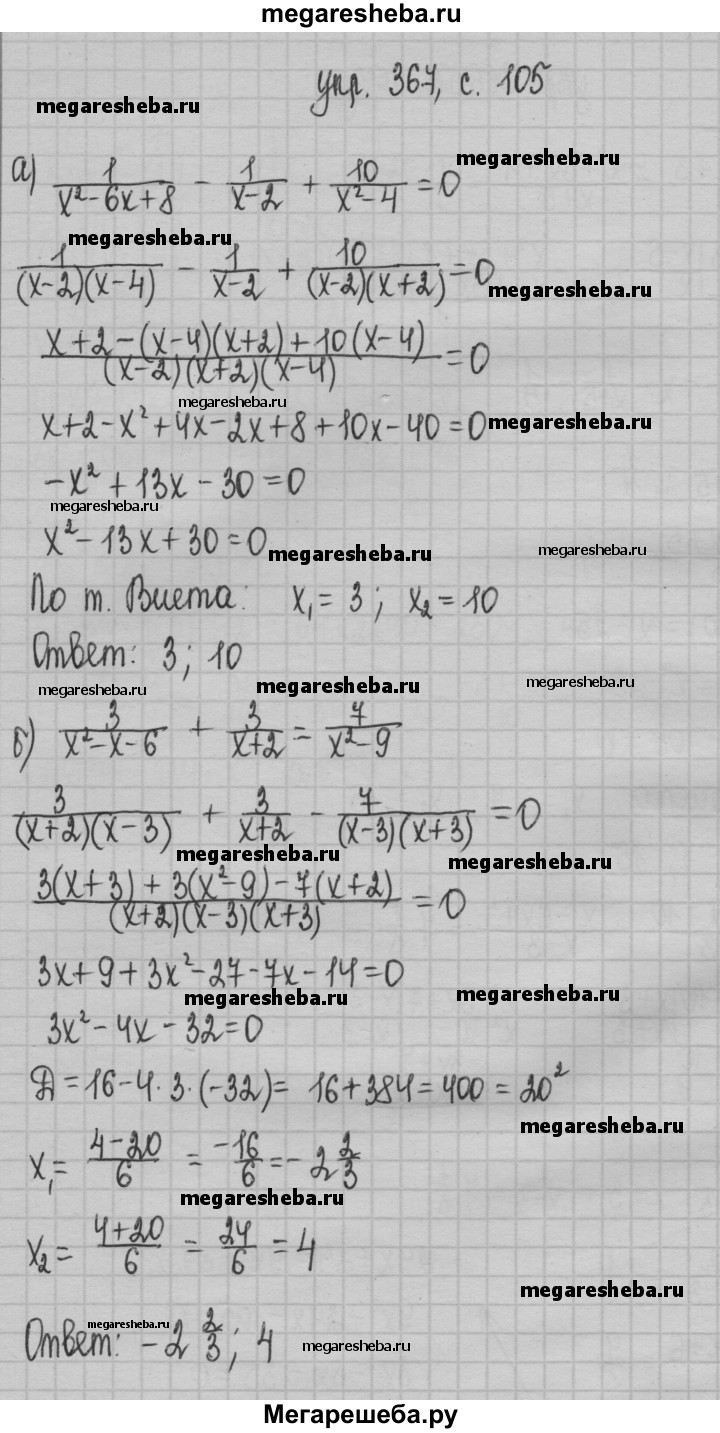 megaresheba.ru
упр. 367, с. 105
megaresheba.ru
megaresheba.ru
а) 1/(x²-6x+8) - 1/(x-2) + 10/(x²-4) = 0
megaresheba.ru
1/((x-2)(x-4)) - 1/(x-2) + 10/((x-2)(x+2)) = 0
megaresheba.ru
(x+2-(x-4)(x+2)+10(x-4))/((x-2)(x+2)(x-4)) = 0
megaresheba.ru
x+2-x²+4x-2x+8+10x-40=0
megaresheba.ru
-x²+13x-30=0
megaresheba.ru
x²-13x+30=0
megaresheba.ru
megaresheba.ru
По т. Виета: x₁=3; x₂=10
Ответ: 3; 10
megaresheba.ru
megaresheba.ru
megaresheba.ru
б) 3/(x²-x-6) + 3/(x+2) = 7/(x²-9)
3/((x+2)(x-3)) + 3/(x+2) - 7/((x-3)(x+3)) = 0
megaresheba.ru
megaresheba.ru
(3(x+3)+3(x²-9)-7(x+2))/((x+2)(x-3)(x+3)) = 0
3x+9+3x²-27-7x-14=0
megaresheba.ru
megaresheba.ru
3x²-4x-32=0
Д=16-4·3·(-32)= 16+384=400=20²
megaresheba.ru
x₁= (4-20)/6 = -16/6 = -2 2/3
megaresheba.ru
x₂= (4+20)/6 = 24/6 = 4
megaresheba.ru
Ответ: -2 2/3; 4
megaresheba.ru
megaresheba.ru
Мегарешеба.ру